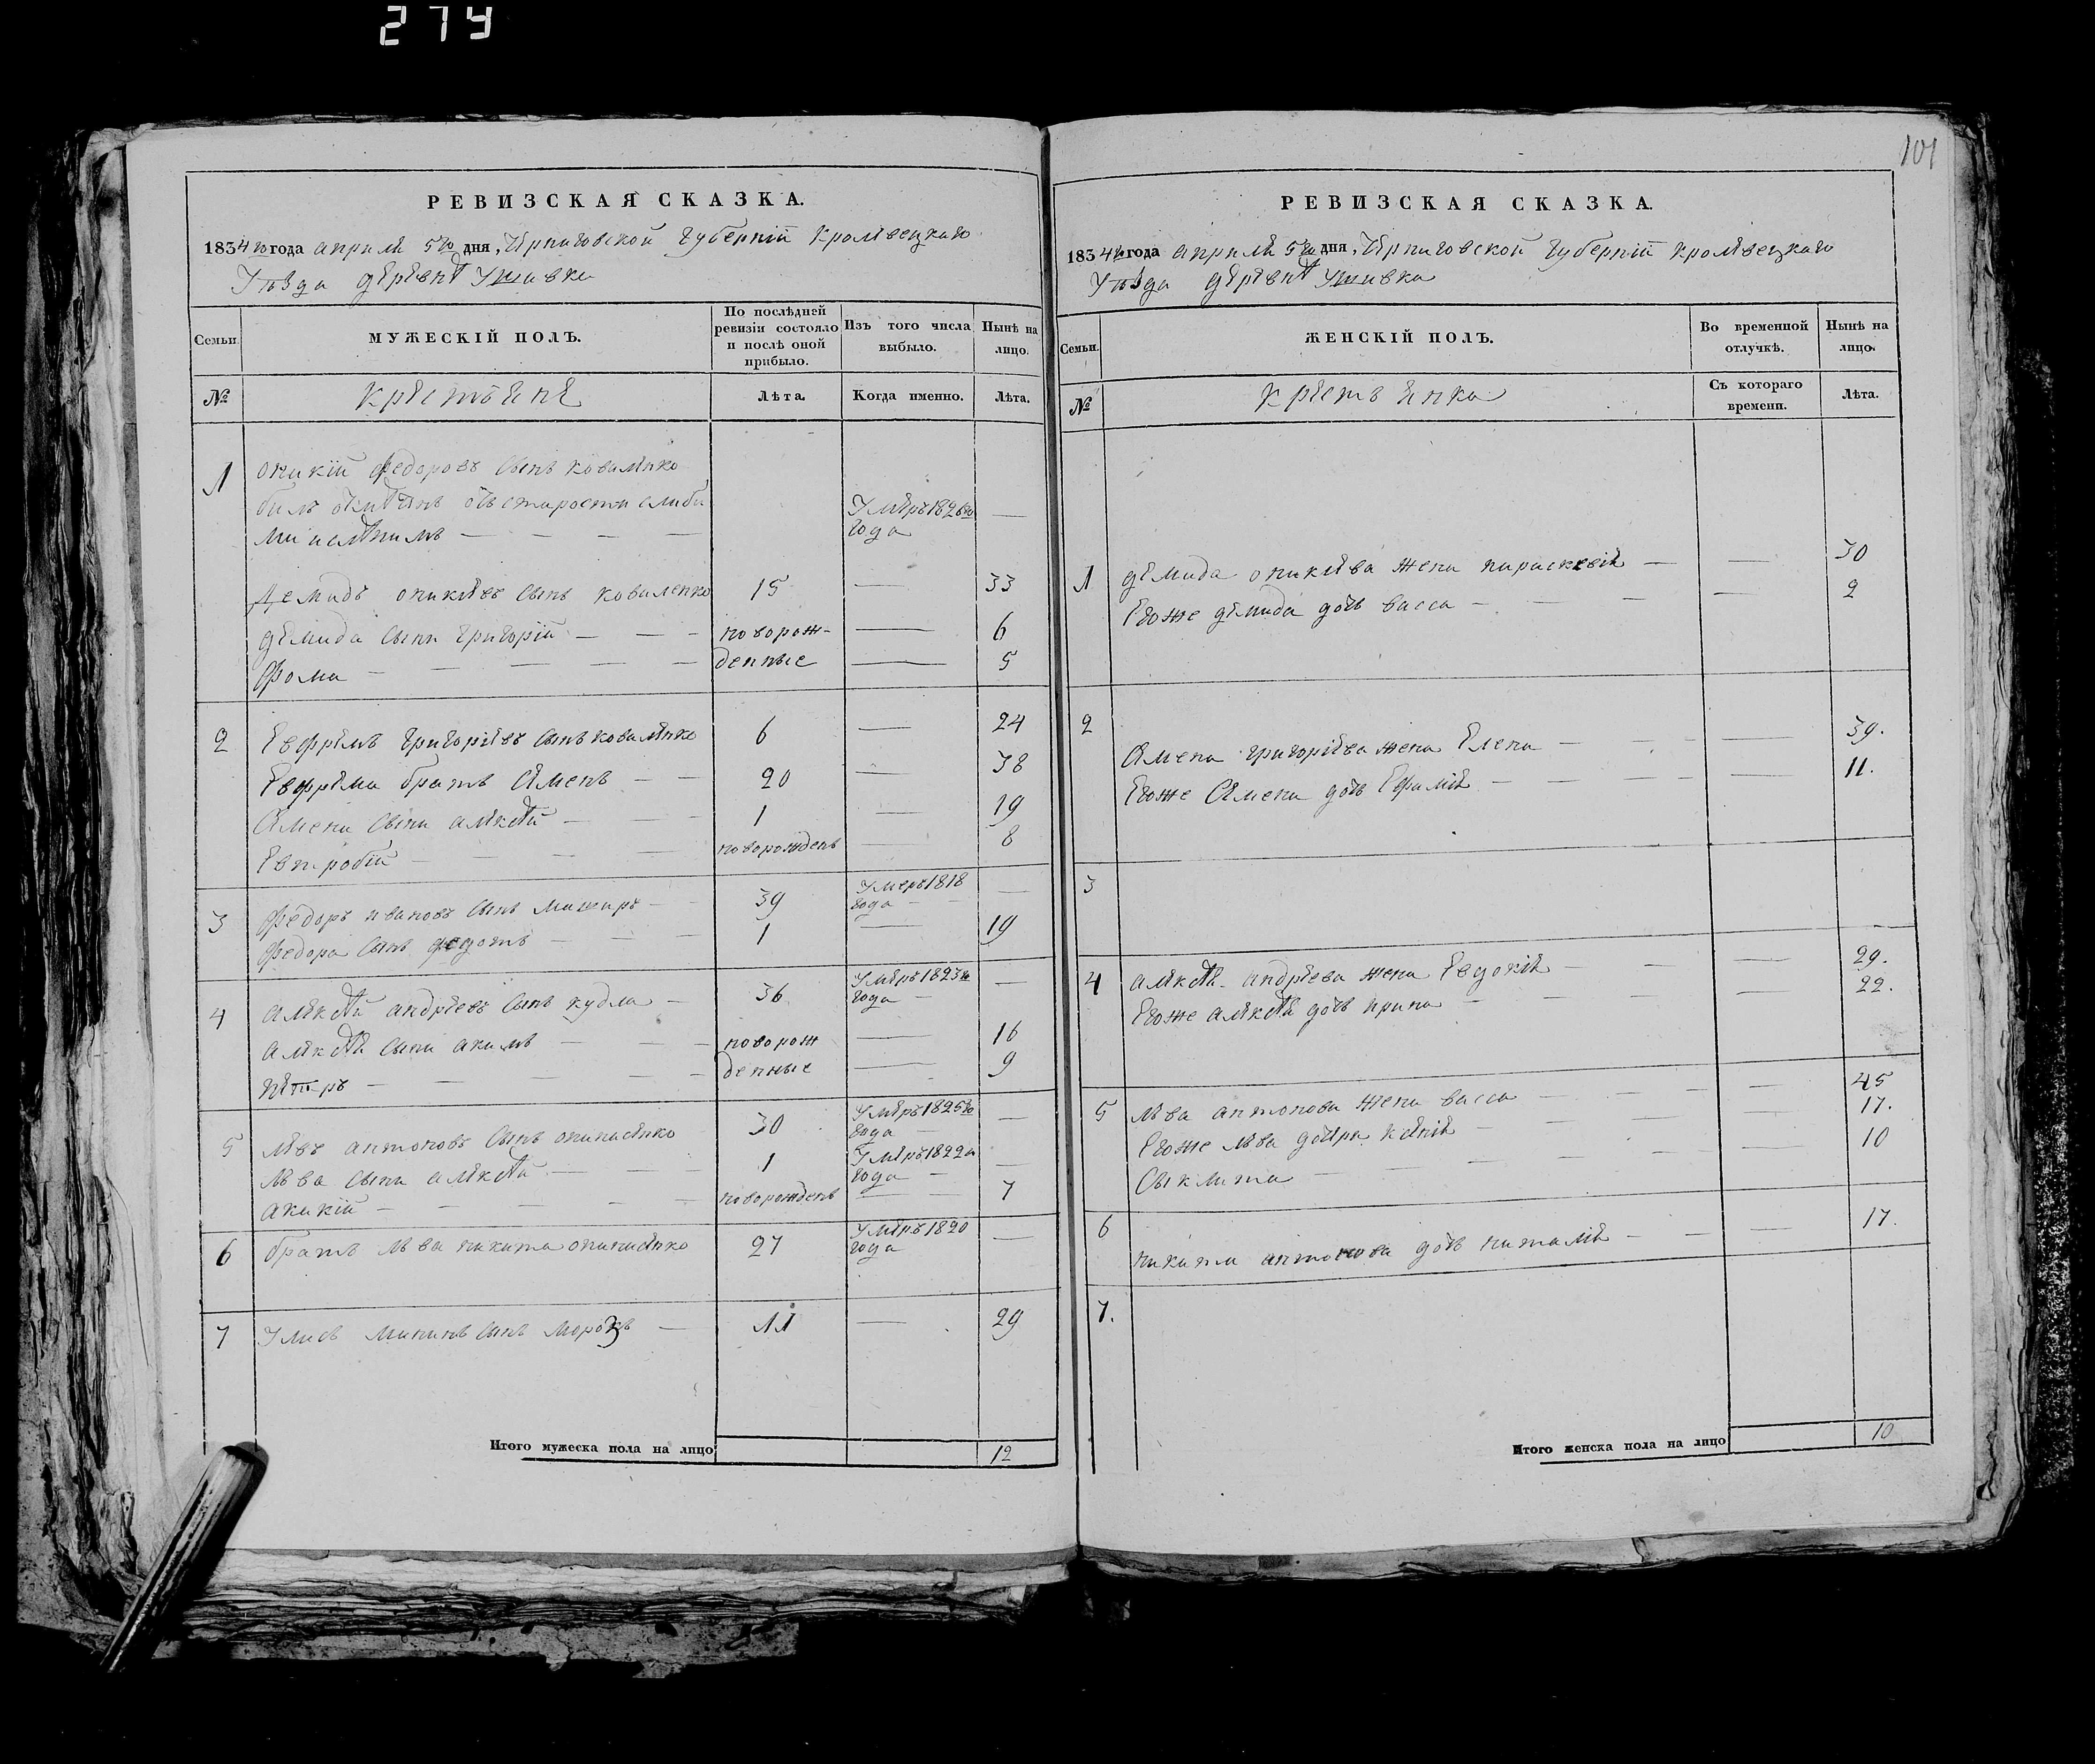 279
101
РЕВИЗСКАЯ СКАЗКА.
1834го года апреля 5го дня, Черниговской Губернїй Кролевецкаго
Уѣзда деревнѣ Ушивки
Семьи. МУЖЕСКІЙ ПОЛЪ. По послѣдней ревизіи состояло и послѣ оной прибыло. Изъ того числа выбыло. Нынѣ на лицо.
№ крестьяне Лѣта. Когда именно. Лѣта.
1 Федоровъ сынъ коваленко
Умеръ 1826го —
года
Демидъ сынъ коваленко 15 — 33
демида сыни григорїй — — — новорож- — 6
фома — — — — — денные — 5
2 Евфремъ григориевъ сынъ коваленко 6 — 24
Евфрема братъ Семенъ — — 20 — 38
Семена сыни алексѣй — — — 1 — 19
— — — новорожденъ — 8
3 федоръ ивановъ сынъ — — 39 Умеръ 1818 —
года — —
федора сынъ федотъ — — — 1 — 19
4 алексѣй андреевъ сынъ кудла — 36 Умеръ 1823го —
года —
алексѣя сыни акимъ — — — новорож — 16
петръ — — — — — денные — 9
5 левъ антоновъ сынъ 30 Умеръ 1825го —
года —
лева сыни алексѣй — — — 1 Умеръ 1822го —
года —
акикїй — — — — новорожденъ — — 7
6 братъ лева никита 27 Умеръ 1820 —
года
7 сынъ морозъ — 11 — 29
Итого мужеска пола на лицо 12
РЕВИЗСКАЯ СКАЗКА.
1834го года апреля 5го дня, Черниговской Губернїй Кролевецкаго
Уѣзда деревнѣ Ушивки
Семьи. ЖЕНСКІЙ ПОЛЪ. Во временной отлучкѣ. Нынѣ на лицо.
№ крестьянка Съ котораго времени. Лѣта.
1 демида жена параскевія — — 30
Егоже демида дочь васса — — — — 9
2 Семена григориева жена Елена — — — — 39.
Егоже Семена дочь Ефимія — — — — — 11.
3
4 алексѣя андреева жена Евдокія — — — 29.
Егоже алексѣя дочь ирина — — — — 22.
5 лева антонова жена васса — — — — 45
Егоже лева дочери ксенія — — — 17.
— — — — — 10
6 никити антонова дочь наталія — — — 17.
7.
Итого женска пола на лицо 10